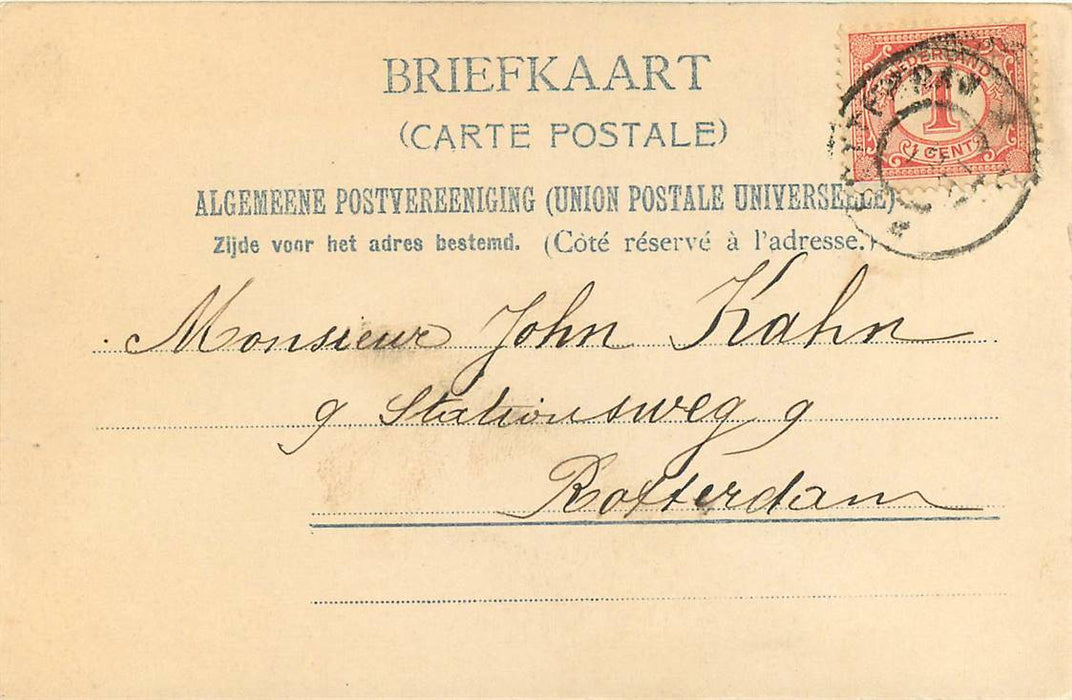 BRIEFKAART
(CARTE POSTALE)
ALGEMEENE POSTVEREENIGING (UNION POSTALE UNIVERSELLE)
Zijde voor het adres bestemd. (Côté réservé à l'adresse.)
NEDERLAND
1
CENT
Monsieur John Kahn
9 Stationsweg 9
Rotterdam